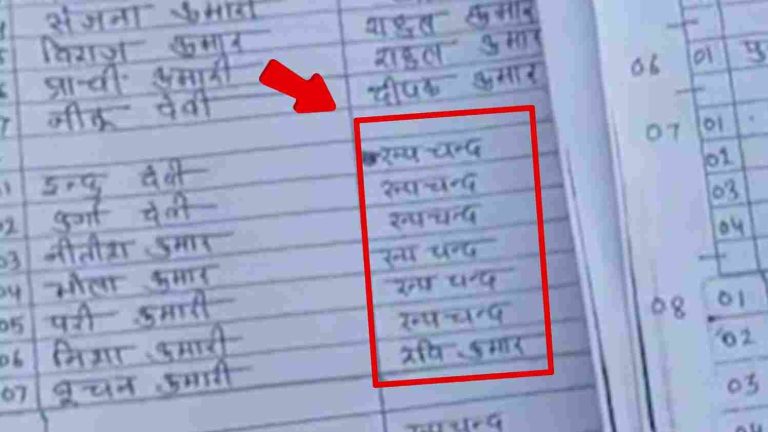 संजना कुमारी राहुल कुमार
विराज कुमार राहुल कुमार
प्राची कुमारी दीपक कुमार
7 नीतू देवी
01 इन्दु देवी रूपचन्द
02 दुर्गा देवी रूपचन्द
03 नीतीश कुमार रूपचन्द
04 भोला कुमार रूपचन्द
05 परी कुमारी रूपचन्द
06 निशा कुमारी रूपचन्द
07 कुमारी रवि कुमार
रूपचन्द
06 01
07 01
02
03
04
08 01
02
03
04